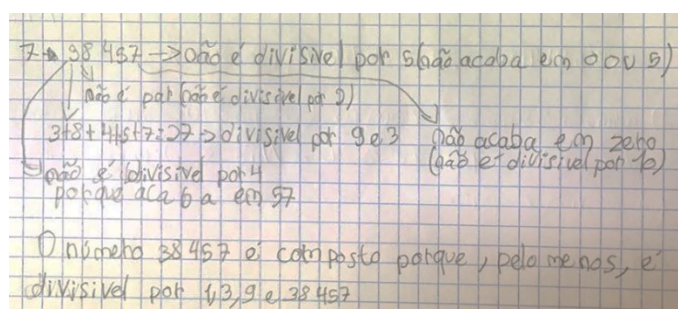 7 38 457 → não é divisivel por 5 (não acaba em 0 ou 5)
não é par (não é divisivel por 2)
3+8+4+5+7=27 → divisivel por 9 e 3
não acaba em zero
(não é divisivel por 10)
não é divisivel por 4
porque acaba em 57
O número 38 457 é composto porque, pelo menos, é
divisivel por 1,3,9 e 38 457